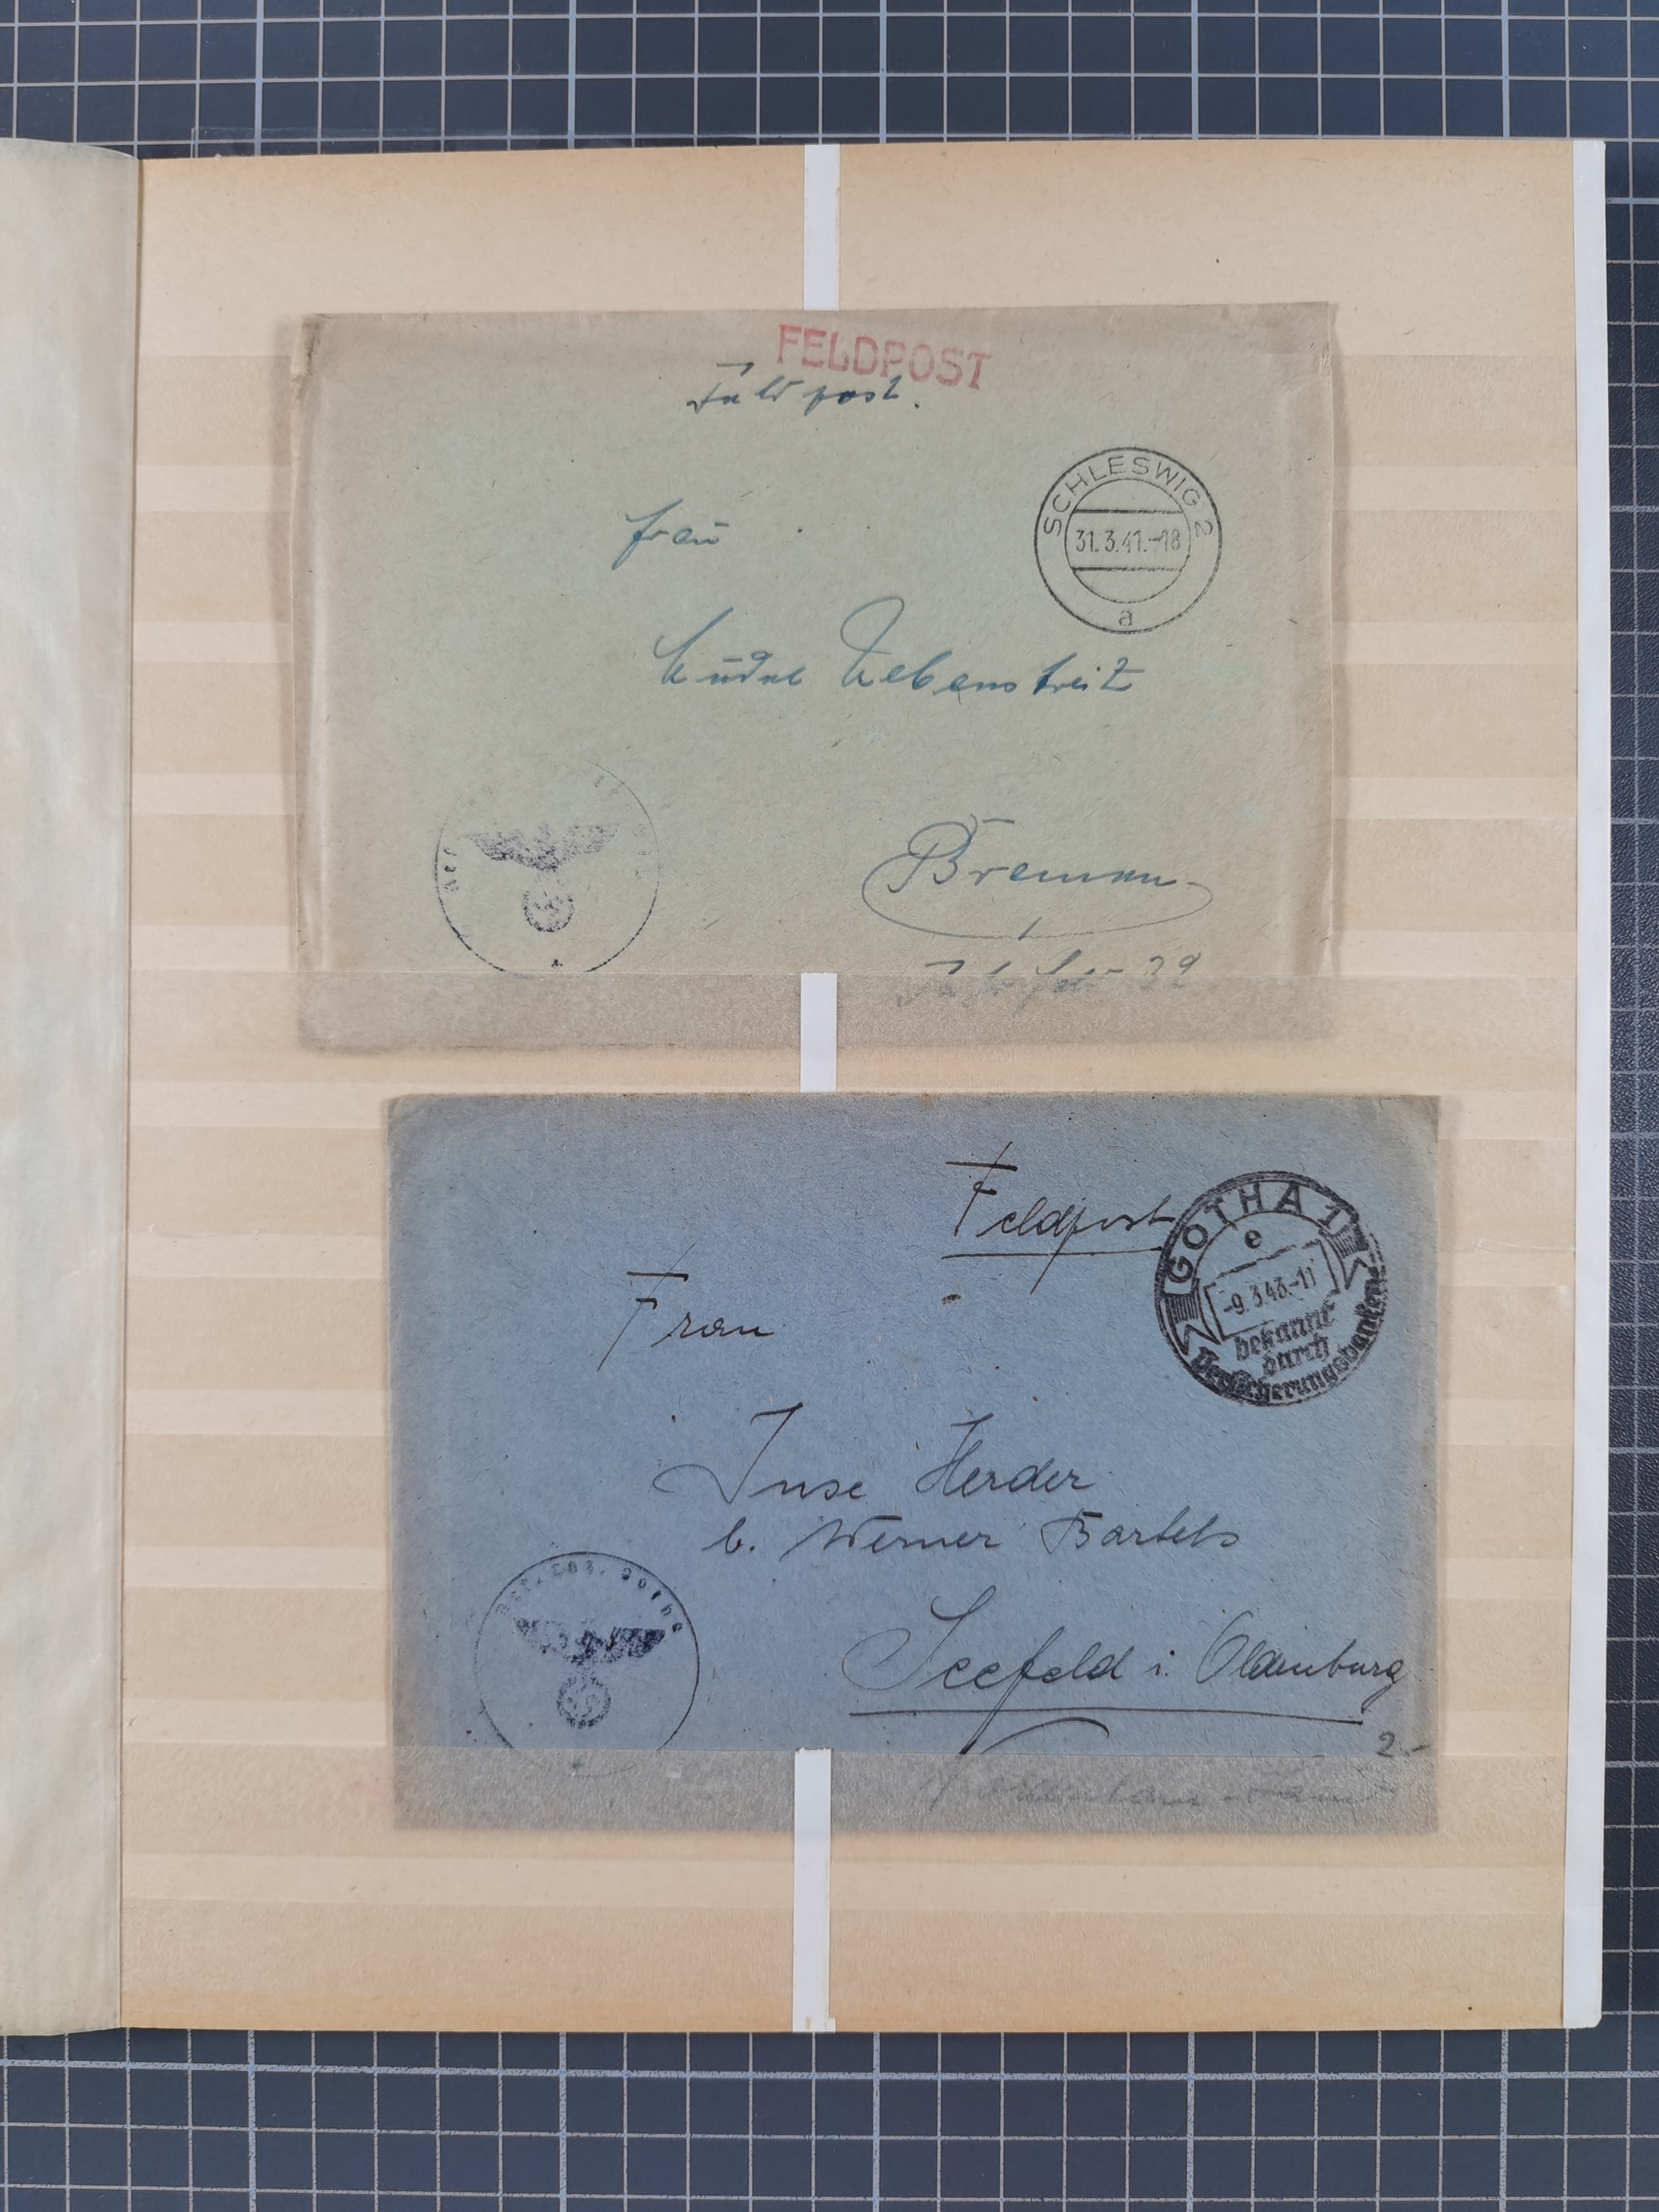 FELDPOST
Feldpost.
Frau
SCHLESWIG 2
31.3.41.-18
a
Hebenstreit
Bremen
Feldpost
GOTHA 1
e
-9.3.43.-11
bekannt
durch
Versicherungsbanken
Frau
Inse Herder
b. Werner Bartels
Res. Laz. Gotha
Seefeld i. Oldenburg
2.-